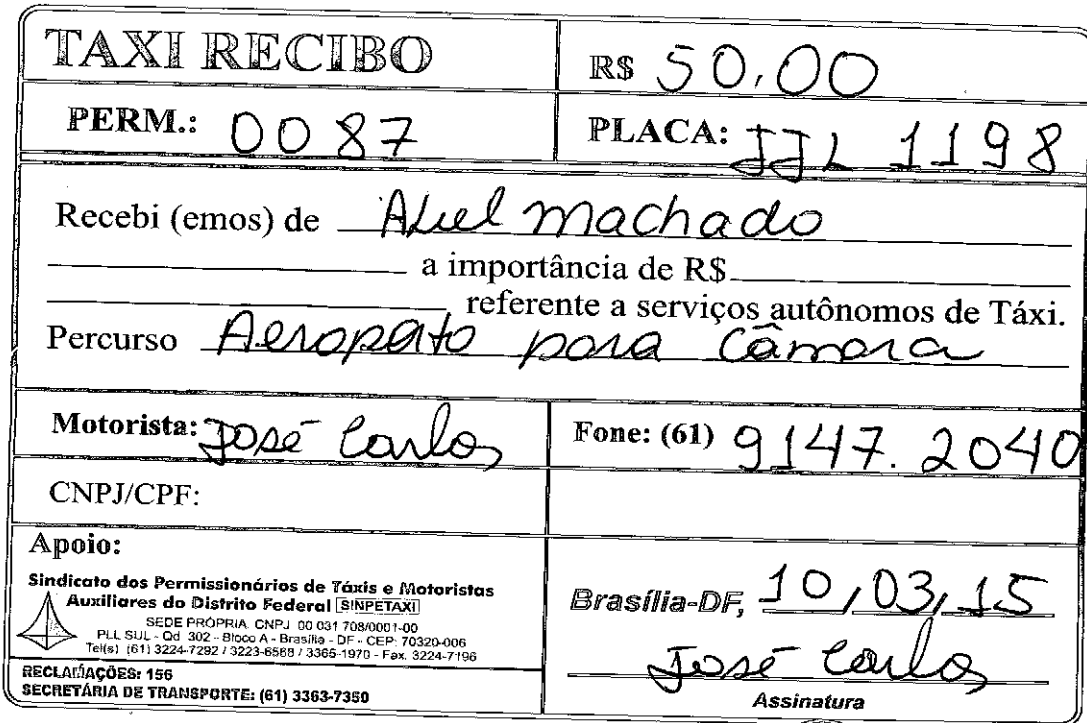 TAXI RECIBO
R$ 50,00
PERM.: 0087
PLACA: JJL 1198
Recebi (emos) de Abel machado
a importância de R$
referente a serviços autônomos de Táxi.
Percurso Aeroporto para Câmara
Motorista: José Carlos
Fone: (61) 9147.2040
CNPJ/CPF:
Apoio:
Sindicato dos Permissionários de Táxis e Motoristas
Auxiliares do Distrito Federal SINPETAXI
SEDE PRÓPRIA CNPJ 00 031 708/0001-00
PLL SUL - Qd 302 - Bloco A - Brasília - DF - CEP: 70320-006
Tel(s) (61) 3224-7292 / 3223-6568 / 3365-1970 - Fax. 3224-7196
RECLAMAÇÕES: 156
SECRETÁRIA DE TRANSPORTE: (61) 3363-7350
Brasília-DF, 10/03/15
José Carlos
Assinatura